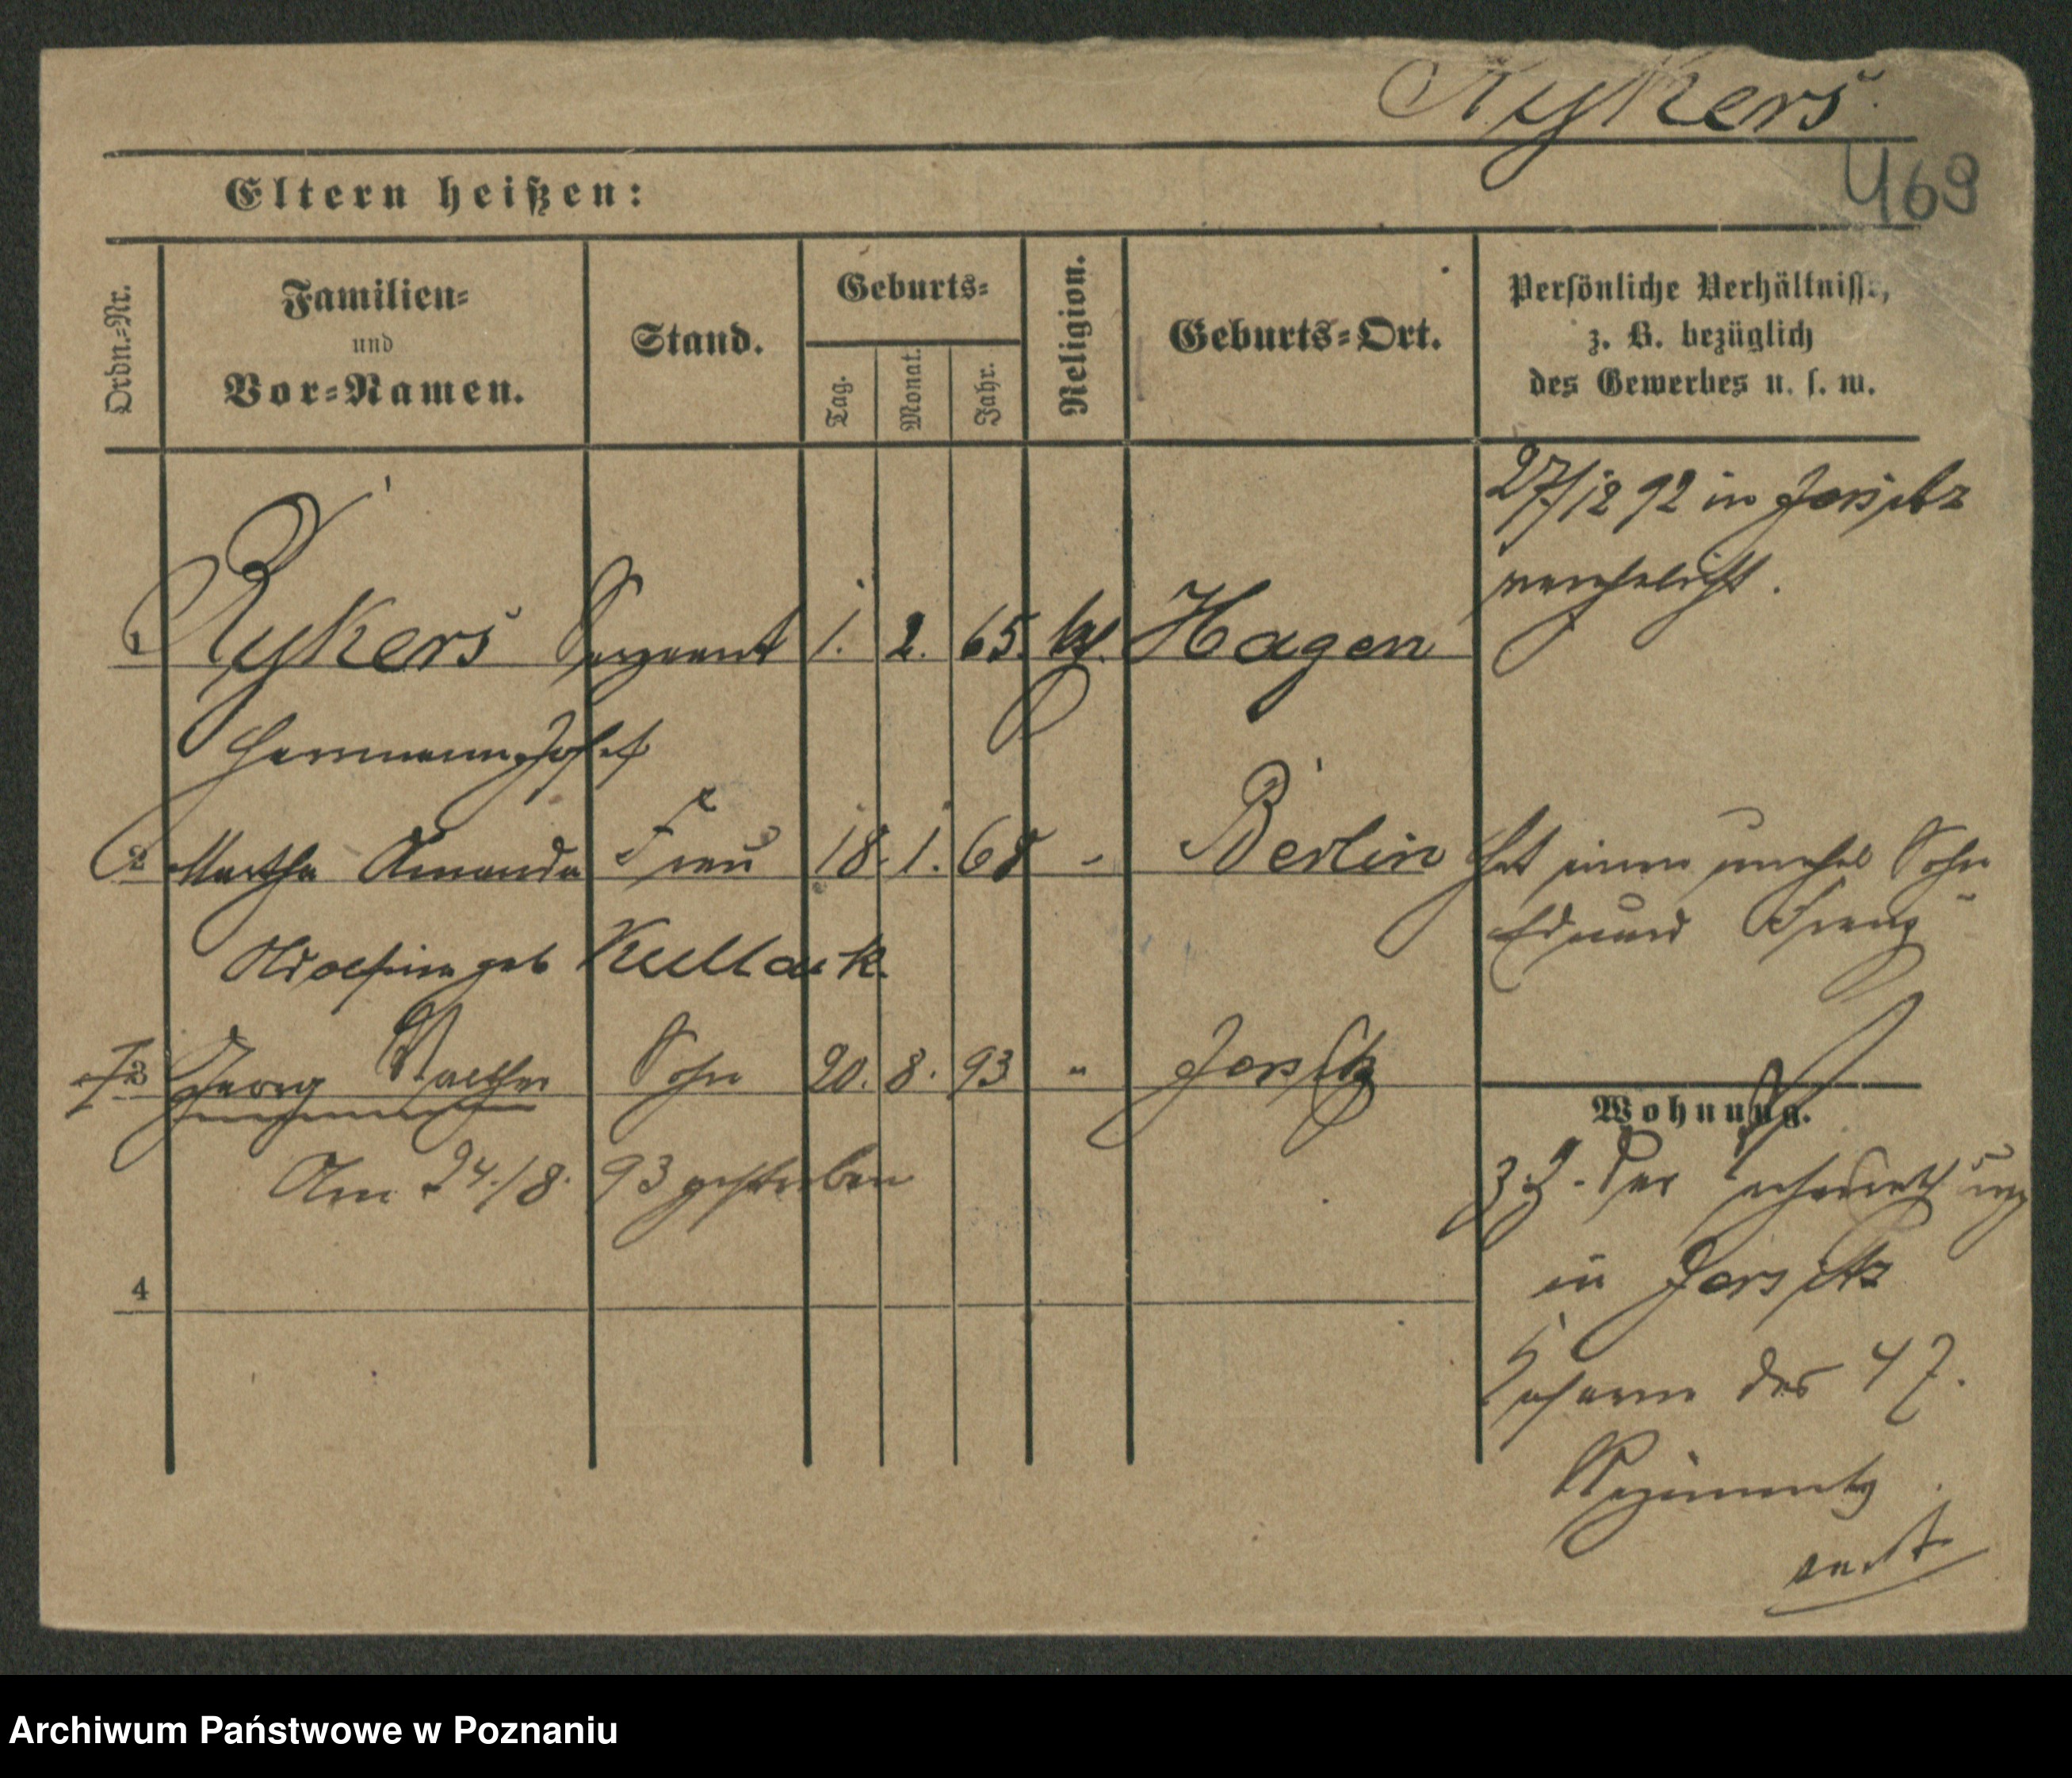 Rykers
469
Eltern heißen:
Ordn.-Nr.
Familien-
und
Vor-Namen.
Stand.
Geburts-
Tag.
Monat.
Jahr.
Religion.
Geburts-Ort.
Persönliche Verhältnisse,
z. B. bezüglich
des Gewerbes u. s. w.
27/12 92 in Jersitz
verehelicht.
1 Rykers Sergeant 1. 2. 65. kf. Hagen
Hermann Josef
2 Martha Amanda Frau 18. 1. 68 " Berlin hat einen unehel Sohn
Eduard Franz
Adolfine geb Kullack
3 Georg Walther Sohn 20. 8. 93 " Jersitz
Am 24./8. 93 gestorben
4
Wohnung.
z. Z. der
in Jersitz
Kaserne des 47.
Regiments
Archiwum Państwowe w Poznaniu